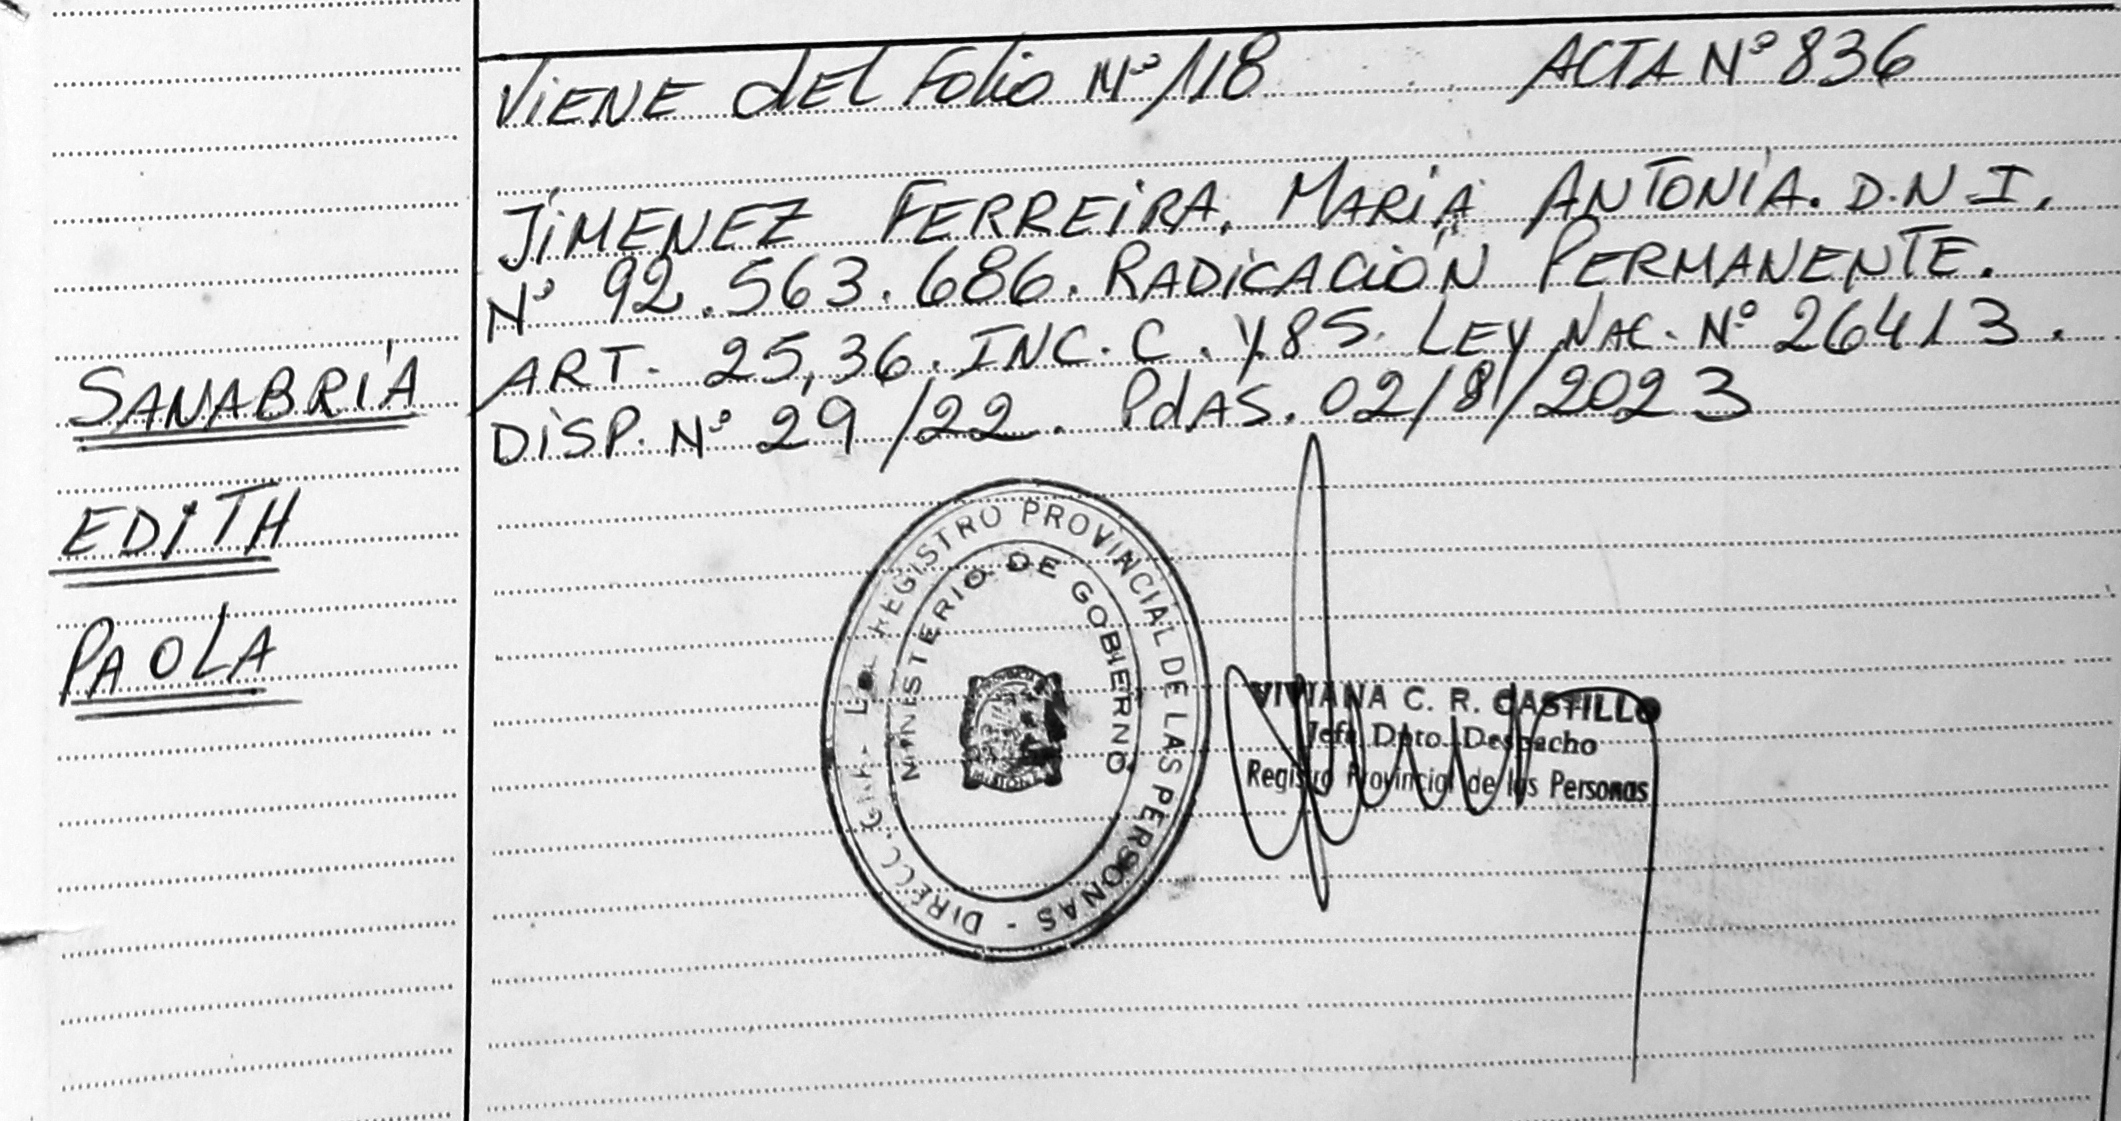 VIENE dEL Folio Nº 118 ACTA Nº 836
JIMENEZ FERREIRA, MARÍA ANTONIA. D.N.I.
Nº 92.563.686. RADICACIÓN PERMANENTE.
ART. 25,36. INC. C. Y 85. LEY NAC. Nº 26413.
DISP. Nº 29/22. PdAS. 02/8/2023
SANABRIA
EDITH
PAOLA
DIRECC. GRAL. REGISTRO PROVINCIAL DE LAS PERSONAS -
MINISTERIO DE GOBIERNO
VIVIANA C. R. CASTILLO
Jefe Dpto. Despacho
Registro Provincial de las Personas